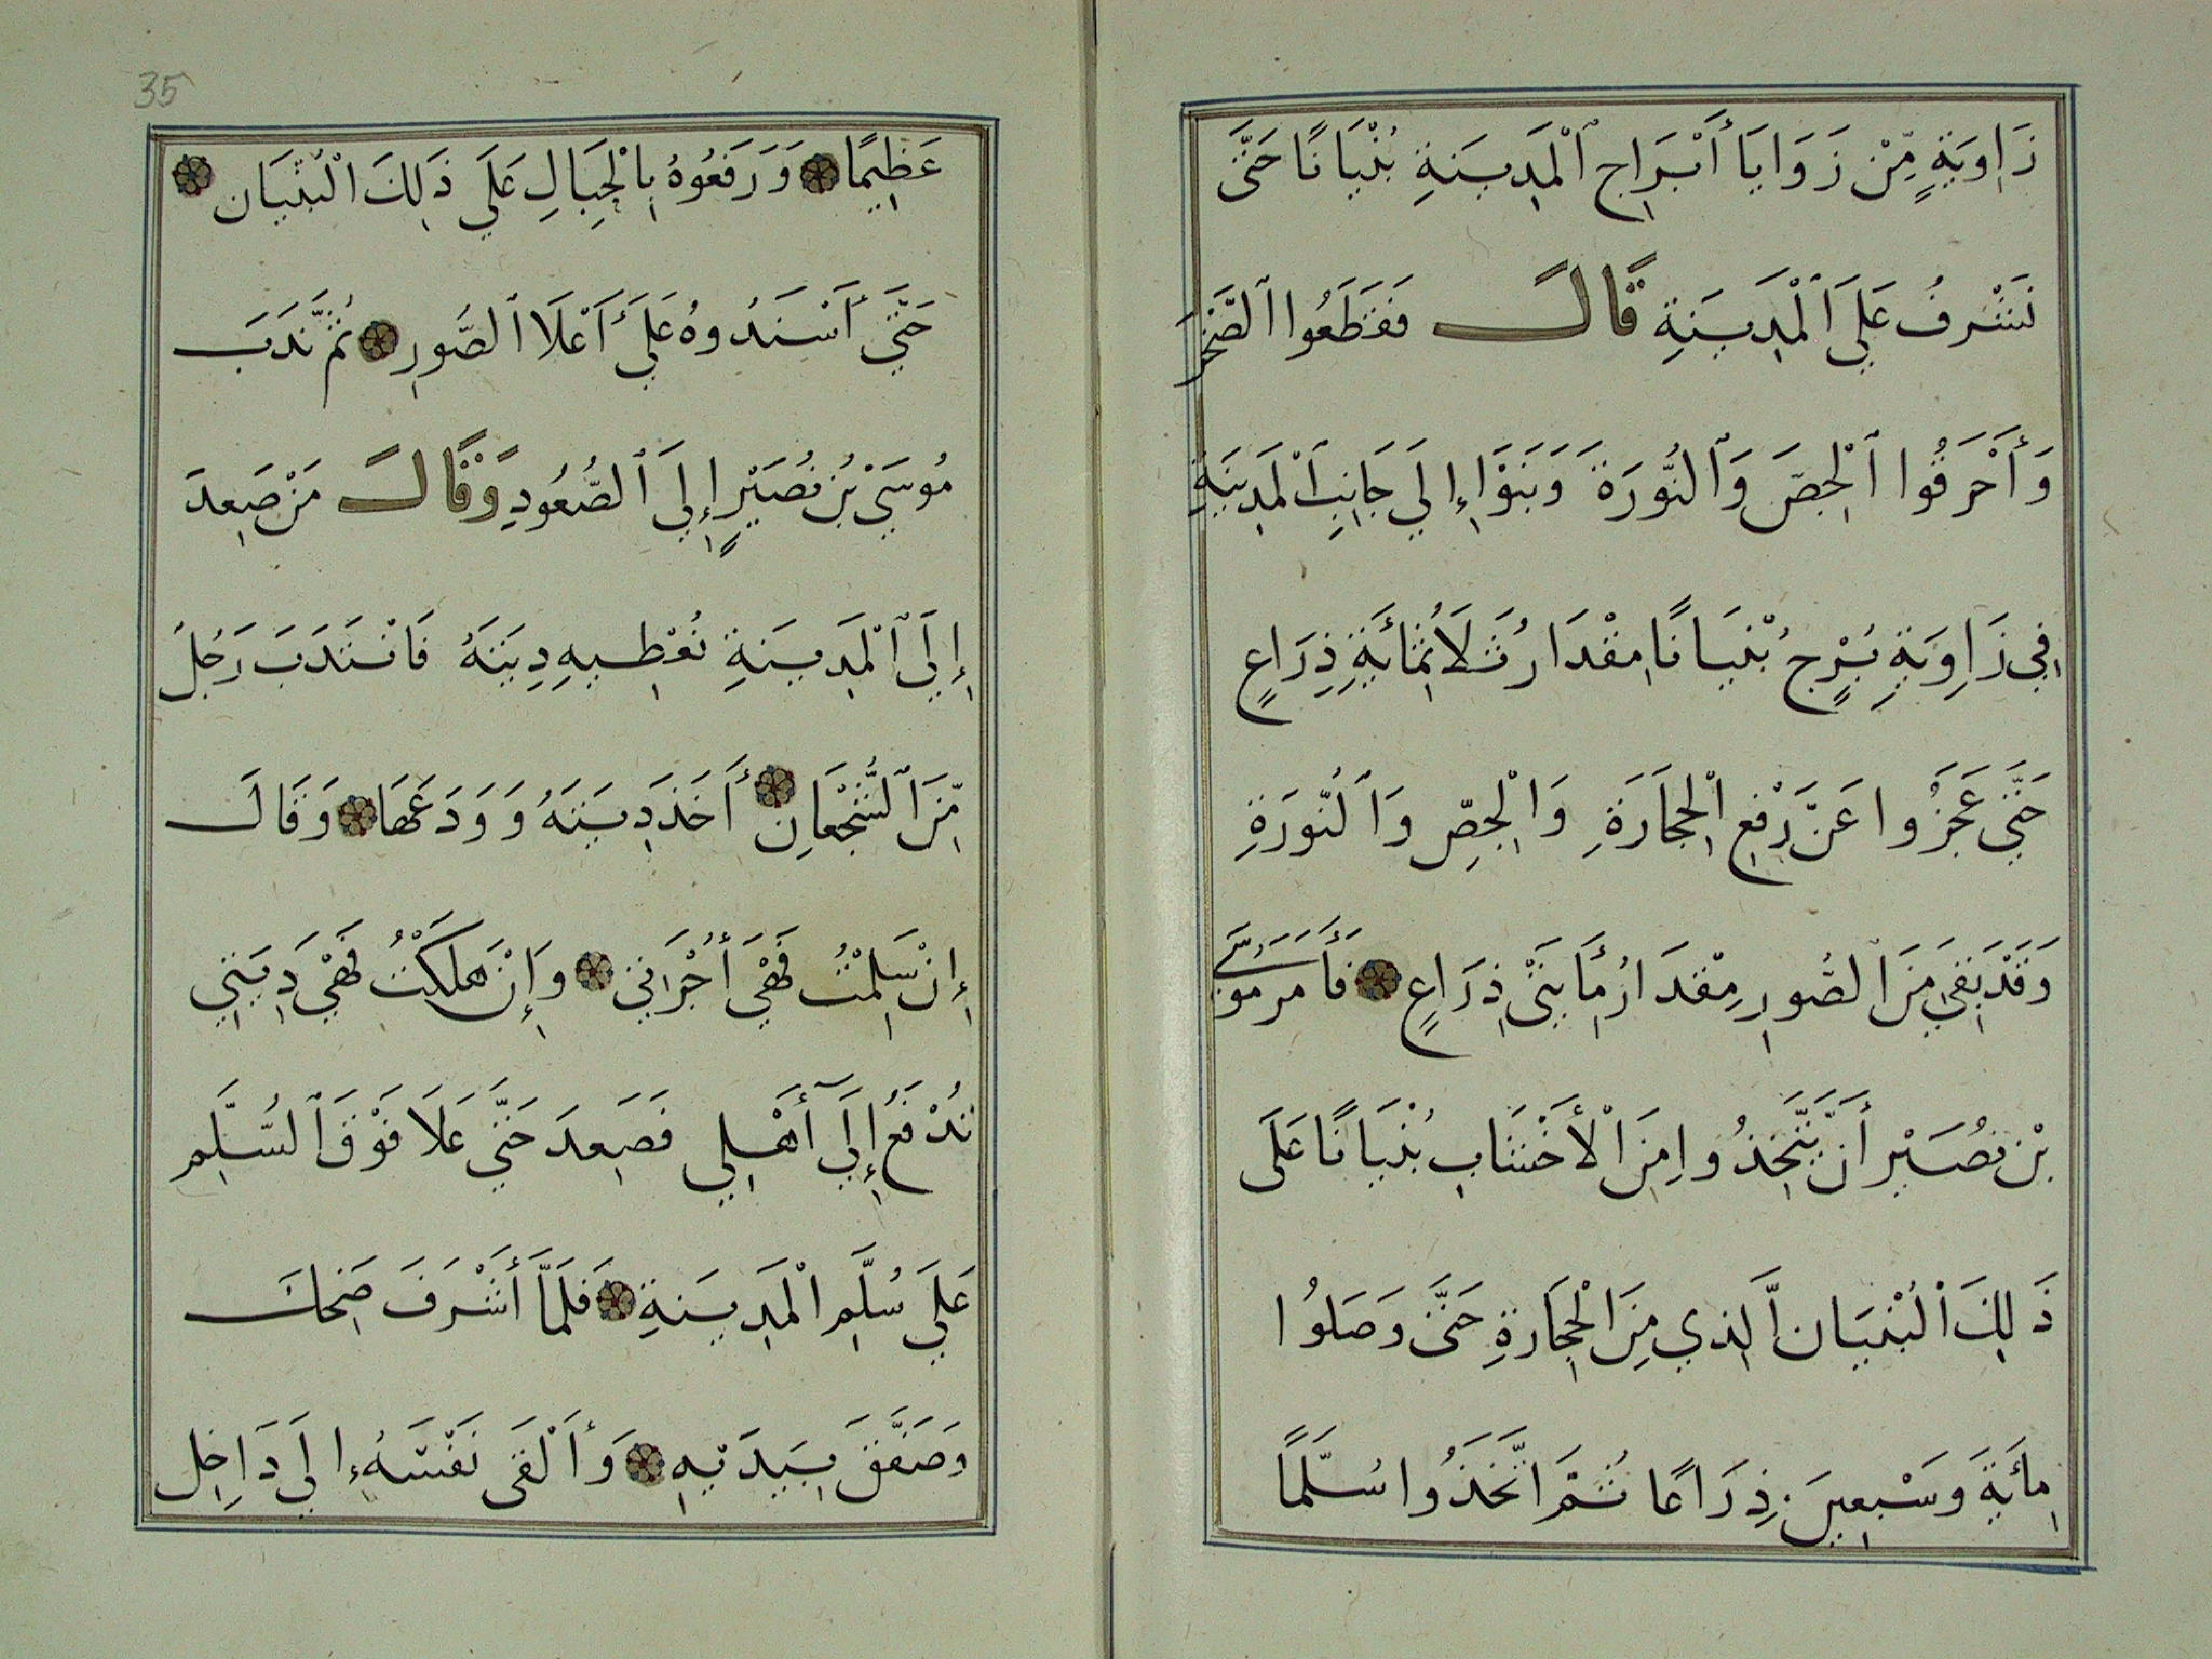 زَاوِيَةٍ مِّنْ زَوَايَا أَبْرَاجِ ٱلْمَدِينَةِ بُنْيَانًا حَتَّى
نَشْرفُ عَلَى ٱلْمَدِينَةِ قَالَ فَقَطَعُوا ٱلصَّخْرَ
وَأَحْرَقُوا ٱلْجِصَّ وَٱلنُّورَةَ وَبَنَوْا إِلَى جَانِبِ ٱلْمَدِينَةِ
فِي زَاوِيَةِ بُرْجٍ بُنْيَانًا مِقْدَارُ ثَلَاثُمِائَةِ ذِرَاعٍ
حَتَّى عَجَزُوا عَنْ رَّفْعِ الْحِجَارَةِ وَالْجِصِّ وَٱلنُّورَةِ
وَقَدْ بَقِيَ مِنَ الصُّورِ مِقْدَارُ مِأَيتَىْ ذِرَاعٍ فَأَمَرَ مُوسَى
بْن نُصَيْر أَن يَّتَّخِذُوا مِنَ الْأَخْشَابِ بُنْيَانًا عَلَى
ذَلِكَ الْبُنْيَانِ الَّذِي مِنَ الْحِجَارَةِ حَتَّى وَصَلُوا
مِائَةَ وَسَبْعِينَ ذِرَاعًا ثُمَّ اتَّخَذُوا سُلَّمًا
35
عَظِيمًا وَرَفَعُوهُ بِالْحِبَالِ عَلَى ذَلِكَ الْبُنْيَانِ
حَتَّى أَسْنَدُوهُ عَلَى أَعْلَا ٱلصُّورِ ثُمَّ نَدَبَ
مُوسَى بْنُ نُصَيْرٍ إِلَى ٱلصُّعُودِ وَقَالَ مَنْ صَعِدَ
إِلَى ٱلْمَدِينَةِ نُعْطِيهِ دِيَتَهُ فَانْتَدَبَ رَجُلُ
مِّنَ ٱلشُّجْعَانِ أَخَذَ دِيَتَهُ وَوَدَعَهَا وَقَالَ
إِنْ سَلِمْتُ فَهْيَ أُجْرَانِي وَإِنْ هَلَكْتُ فَهْيَ دِيَتِي
تُدْفَعُ إِلَى أَهْلِي فَصَعِدَ حَتَّى عَلَا فَوْقَ ٱلسُّلَّمِ
عَلَى سُلَّمِ الْمَدِينَةِ فَلَمَّا أَشْرَفَ ضَحِكَ
وَصَفَّقَ بِيَدَيْهِ وَأَلْقَى نَفْسَهُ إِلَى دَاخِلِ